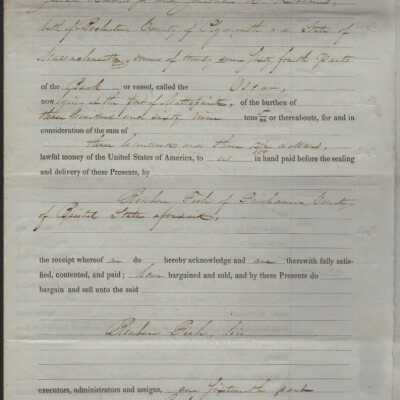 both of Rochester County of Plymouth and State of
Massachusetts, owners of twenty seven sixty fourth parts
of the Bark or vessel, called the Oscar,
now lying in the port of Mattapoisett, of the burthen of
three hundred and sixty nine tons or thereabouts, for and in
consideration of the sum of
three hundred and three dollars,
lawful money of the United States of America, to us in hand paid before the sealing
and delivery of these Presents, by
Reuben Fish of Fairhaven County
of Bristol State aforesaid,
the receipt whereof we do hereby acknowledge and are therewith fully satis-
fied, contented, and paid; have bargained and sold, and by these Presents do
bargain and sell unto the said
Reuben Fish, his
executors, administrators and assigns, one sixteenth part